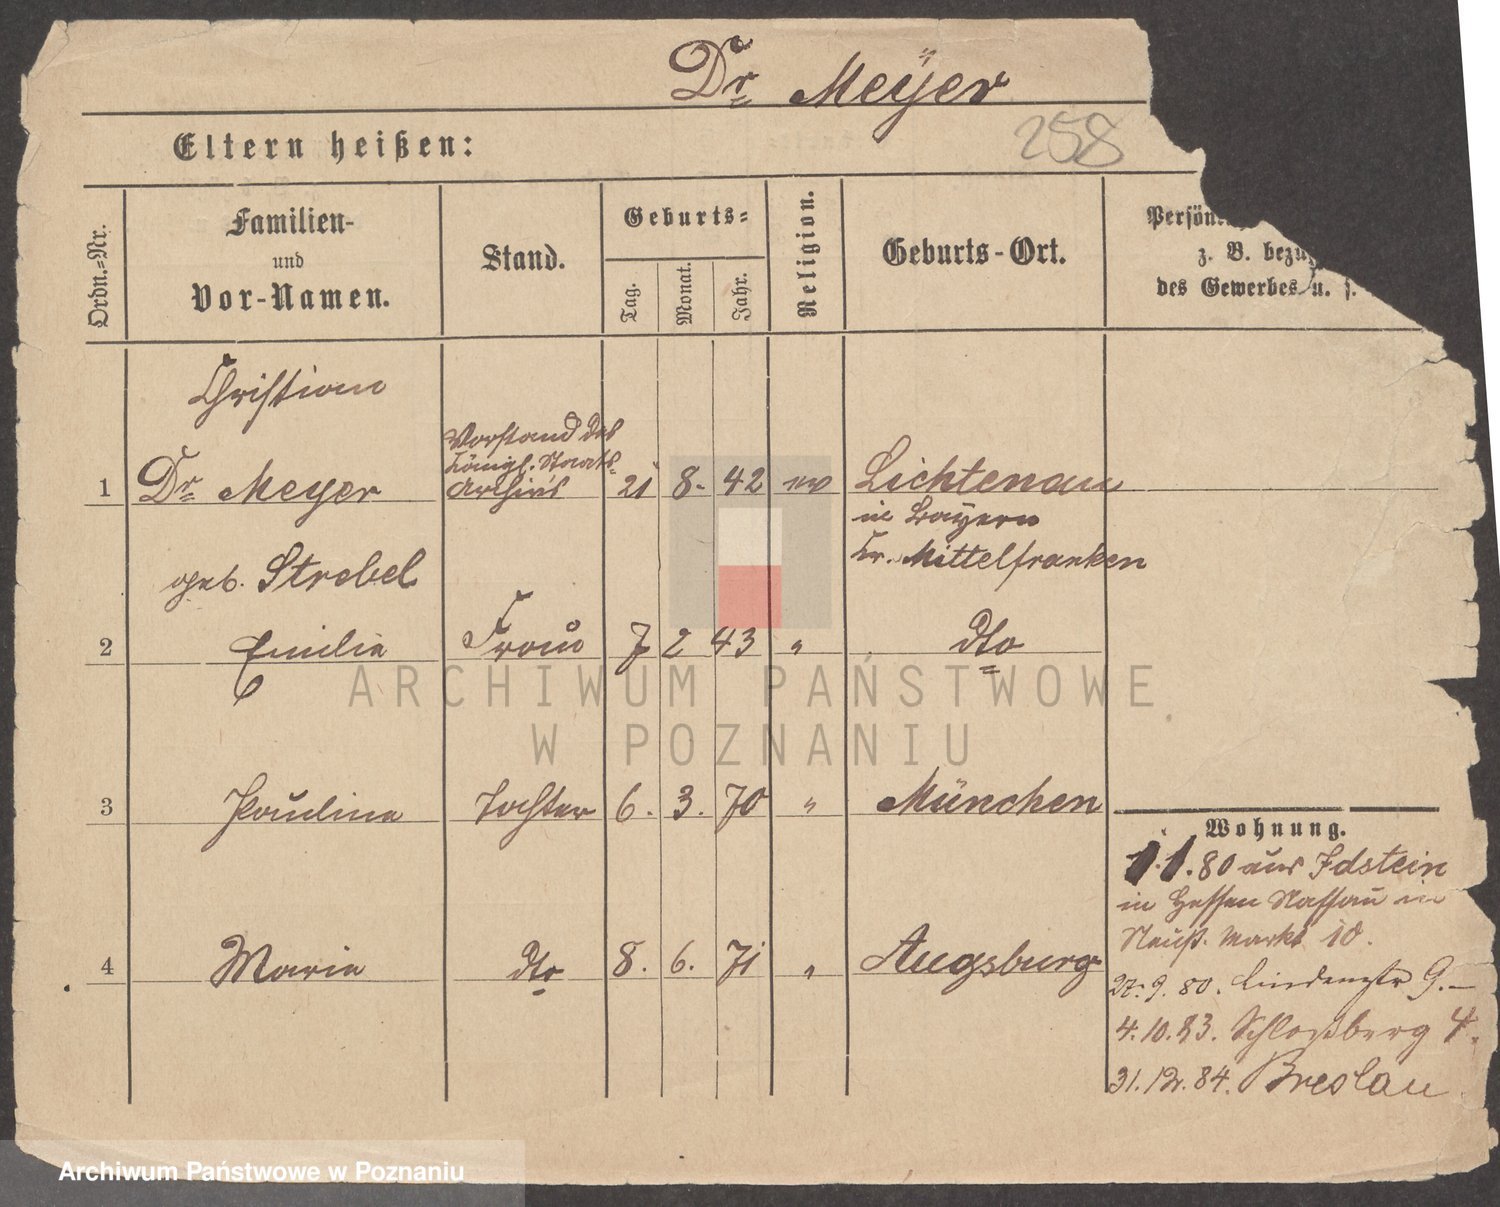 Dr Meyer
258
Eltern heißen:
Ordn.=Nr.
Familien-
und
Vor-Namen.
Stand.
Geburts=
Tag.
Monat.
Jahr.
Religion.
Geburts-Ort.
Persön
z. B. bezu
des Gewerbes u. s.
Christian
1 Dr Meyer
Vorstand des
Königl. Staats-
Archivs
21 8. 42 ev
Lichtenau
in Bayern
Kr. Mittelfranken
geb. Strebel
2 Emilie Frau 7 2 43 " dto
3 Pauline Tochter 6. 3. 70 " München
4 Marie dto 8. 6. 71 " Augsburg
Wohnung.
1.1.80 aus Idstein
in Hessen Nassau in
Neust. Markt 10.
27.9.80. Lindenstr 9.—
4.10.83. Schloßberg 4.
31.12.84. Breslau
ARCHIWUM PAŃSTWOWE
W POZNANIU
Archiwum Państwowe w Poznaniu